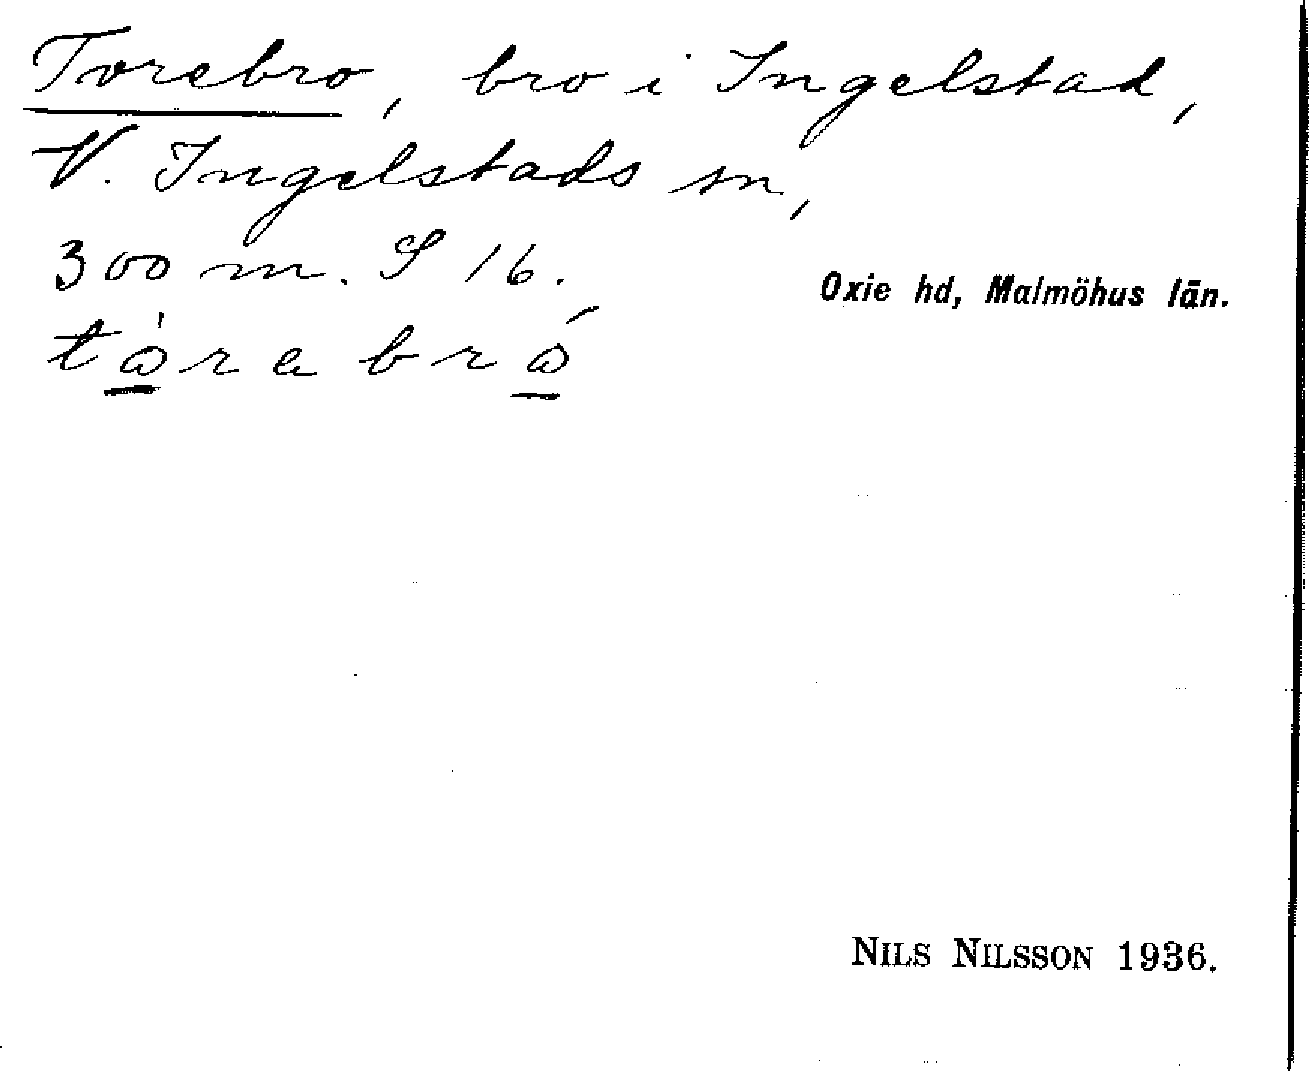 Torebro, bro i Ingelstad,
V. Ingelstads sn,
300 m. S 16.
Oxie hd, Malmöhus län.
NILS NILSSON 1936.